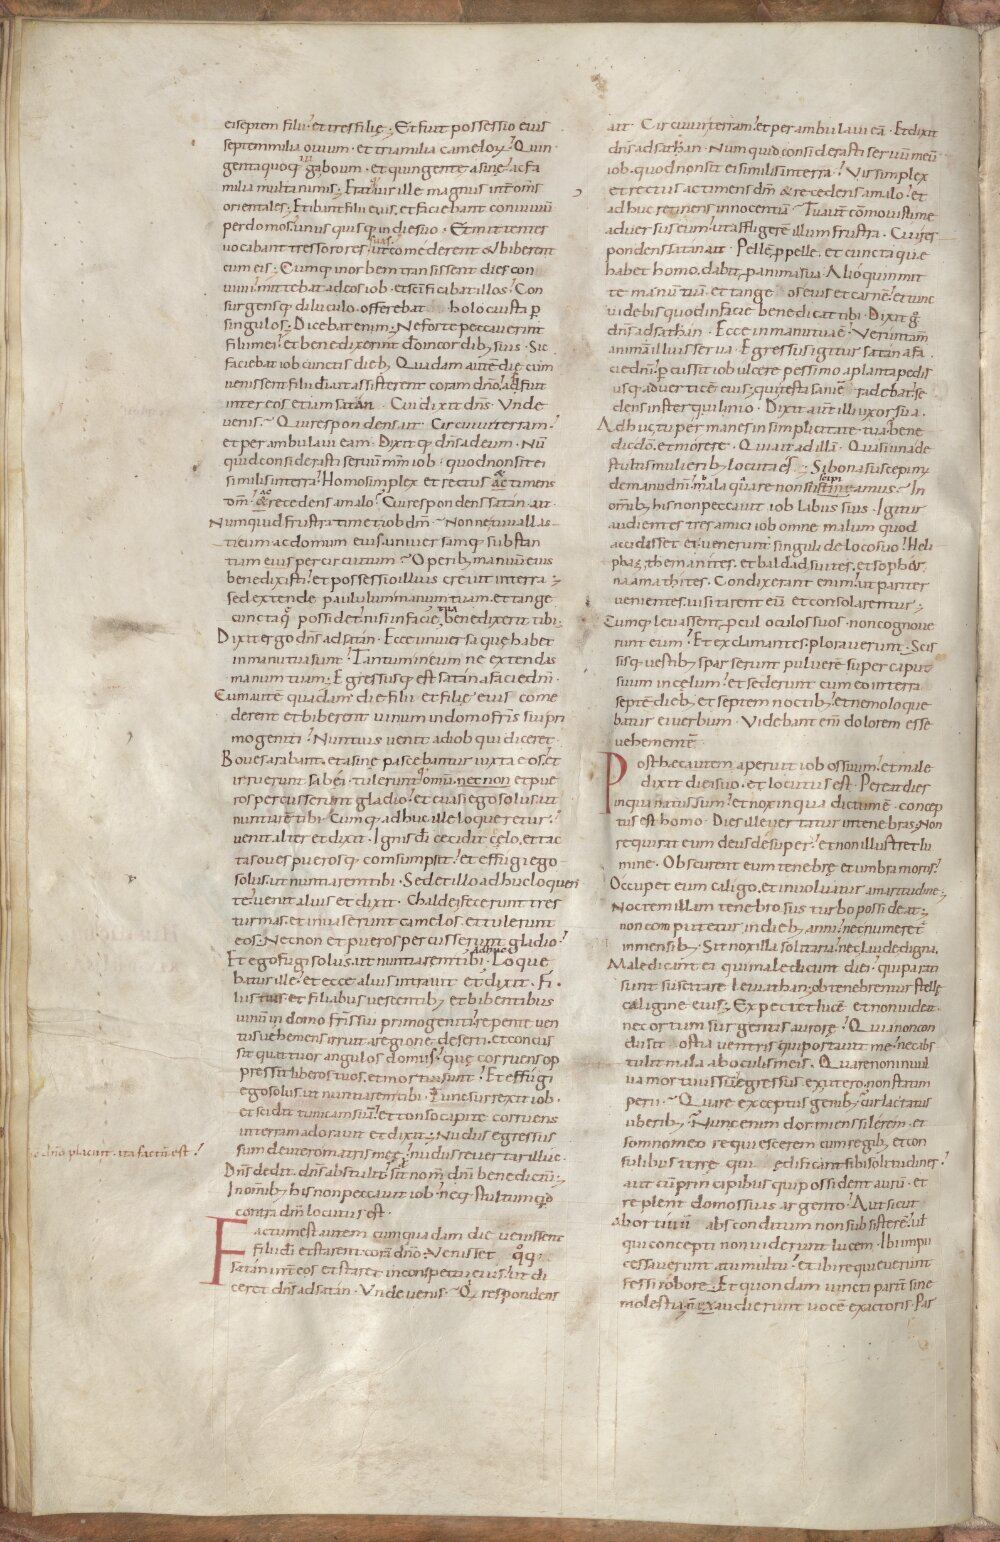 ei septem filii · et tres filię ; Et fuit possessio eius
septem milia ovium · et tria milia camelorum · Quin
genta quoq; iuga boum · et quingente asine · ac fa
milia multa nimis ; Eratq; vir ille magnus int̄ om̄s
orientales ; Et ibant filii eius · et faciebant conuiuiū
per domos · unus quisq; in die suo · Et mittentes
vocabant tres sorores suas · ut comederent & biberent
cum eis ; Cumq; in orbem transissent dies con
uiuii · mittebat ad eos iob · et sc̄ificabat illos · Con
surgensq; diluculo · offerebat holocausta p̄
singulos ; Dicebat enim ; Ne forte peccauerint
filii mei · et benedixerint do in cordib; suis · Sic
faciebat iob cunctis dieb; Quadam autē die cum
uenissent filii di · ut assisterent coram dn̄o · adfuit
inter eos etiam satan · Cui dixit dn̄s · Vnde
uenis · Qui respondens ait · Circuiui terram ·
et perambulaui eam · Dixitq; dn̄s ad eum · Nū
quid considerasti seruū meum iob · quod non sit ei
similis in terra · Homo simplex et rectus ac timens
dm̄ · & recedens a malo · Cui respondens satan · ait ·
Numquid frustra timet iob dm̄ · Nonne tu uallas
ti eum ac domum eius · uniuersamq; substan
tiam eius per circuitum · Operib; manuū eius
benedixisti · et possessio illius creuit in terra ;
sed extende paululum manum tuam · et tange
cuncta q̄ possidet · nisi in facie tua benedixerit tibi ;
Dixit ergo dn̄s ad satan · Ecce uniuersa que habet
in manu tua sunt · Tantum in eum ne extendas
manum tuam ; Egressusq; est satan a facie dn̄i ·
Cum autē quadam die filii et filię eius come
derent et biberent uinum in domo fr̄is sui pri
mogeniti · Nuntius uenit ad iob qui diceret ·
Boues arabant · et asinę pascebantur iuxta eos · et
irruerunt sabei · tulerunt q; omnia nec non et pue
ros percusserunt gladio · et euasi ego solus · ut
nuntiarē tibi · Cumq; adhuc ille loqueretur ·
uenit alter et dixit · Ignis di cecidit cęlo · et tac
tas oues puerosq; comsumpsit · et effugi ego
solus · ut nuntiarem tibi · Sed et illo adhuc loquen
te · uenit alius et dixit · Chaldei fecerunt tres
turmas · et inuaserunt camelos · et tulerunt
eos ; Necnon et pueros percusserunt gladio ·
Et ego fugi solus · ut nuntiarem tibi · Adhuc loque
batur ille · et ecce alius intrauit et dixit · Fi
liis tuis et filiabus uescentib; et bibentibus
uinū in domo fr̄is sui primogeniti · repente uen
tus uehemens irruit a regione deserti · et concus
sit quattuor angulos domus · quę corruens op
pressit liberos tuos · et mortui sunt · Et effugi
ego solus · ut nuntiarem tibi · Tunc surrexit iob ·
et scidit tunicam suā · et tonso capite corruens
in terram adorauit et dixit ; Nudus egressus
sum de utero matris meę · nudus reuertar illuc ·
Dn̄s dedit · dn̄s abstulit · sit nom̄ dn̄i benedictū ;
In omīb; his non peccauit iob · neq; stultum qd
contra dm̄ locutus est ·
dn̄o placuit · ita factū est ·
Factum est autem cum quadam die uenissent
filii di et starent corā dn̄o · Venisset qq;
satan int̄ eos et staret in conspectu eius · ut di
ceret dn̄s ad satan · Vnde uenis · Qi respondens
ait · Circuiui terram · et perambulaui eā · Et dixit
dn̄s ad sathan · Numquid considerasti seruū meū
iob · quod non sit ei similis in terra · Vir simplex
et rectus ac timens dm̄ & recedens a malo · et
adhuc retinens innocentiā · Tu aut̄ cōmouisti me
aduersus eum · ut affligerē illum frustra · Cui res
pondens satan ait · Pellē p̄ pelle · et cuncta quę
habet homo · dabit p̄ anima sua · Alioquin mit
te manū tuā · et tange os eius et carnē · et tunc
uidebis quod in facie benedicat tibi · Dixit g̊
dn̄s ad sathan · Ecce in manu tua ē · Verūtam̄
animā illius serua · Egressus igitur satan a fa
cie dn̄i · p̄cussit iob ulcere pessimo a planta pedis
usq; ad uerticē eius ; qui testa saniē radebat · se
dens in sterquilinio · Dixit aut̄ illi uxor sua ·
Adhuc tu permanes in simplicitate tua · bene
dic do · et morere · Qui ait ad illā · Quasi una de
stultis mulierib; locuta es ; Si bona suscepim;
de manu dn̄i · mala quare non sustineamus · In
omīb; his non peccauit iob labiis suis · Igitur
audientes tres amici iob omne malum quod
accidisset ei · uenerunt singuli de loco suo · Heli
phaz themanites · et baldad suites · et sophar
naamathites · Condixerant enim · ut pariter
uenientes · uisitarent eū et consolarentur ;
Cumq; leuassent p̄cul oculos suos · non cognoue
runt eum · Et exclamantes · plorauerunt · Scis
sisq; uestib; sparserunt puluerē super caput
suum in cęlum · et sederunt cum eo in terra
septē dieb; et septem noctib; et nemo loque
batur ei uerbum · Videbant em̄ dolorem esse
uehementē
Post hęc autem aperuit iob os suum · et male
dixit diei suo · et locutus est · Pereat dies
in qua natus sum · et nox in qua dictum ē · concep
tus est homo · Dies ille uertatur in tenebras · Non
requirat eum deus desuper · et non illustret lu
mine · Obscurent eum tenebrę et umbra mortis ·
Occupet eum caligo · et inuoluatur amaritudine ;
Noctem illam tenebrosus turbo possideat ;
non computetur in dieb; anni · nec numeret̄
in mensib; Sit nox illa solitaria · nec laude digna ·
Maledicant ei qui maledicunt diei · qui parati
sunt suscitare leuiathan ; obtenebrentur stellę
caligine eius ; Expectet lucē et non uideat ·
nec ortum surgentis aurorę · Quia non con
clusit ostia uentris qui portauit me · nec abs
tulit mala ab oculis meis · Quare non in uul
ua mortuus sū · egressus ex utero · non statim
perii · Quare exceptus genib; cur lactatus
uberib; Nunc enim dormiens silerem · et
somno meo requiescerem cum regib; et con
sulibus terrę qui edificant sibi solitudines ·
aut cū principibus qui possident aurū · et
replent domos suas argento · Aut sicut
abortiuū absconditum non subsisterē · ul
qui concepti non uiderunt lucem · Ibi impii
cessauerunt a tumultu · et ibi requieuerunt
fessi robore · Et quondam uincti parit̄ sine
molestia · n̄ exaudierunt uocē exactoris · Par